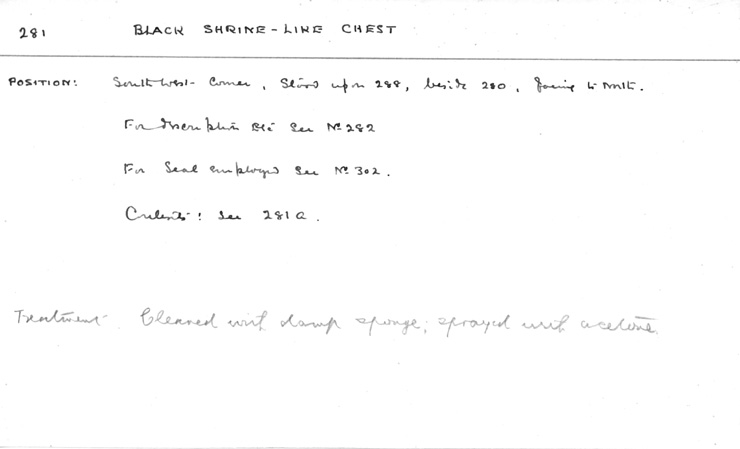 281 BLACK SHRINE-LIKE CHEST
POSITION: South West- Corner, Stood upon 288, beside 280, facing to North.
For description etc see No 282
For Seal employed see No 302.
Contents: see 281a.
Treatment. Cleaned with damp sponge; sprayed with acetone